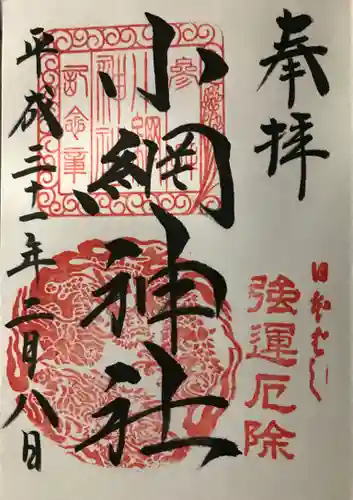 奉拝
日本むし
強運厄除
小網神社
平成三十一年二月八日